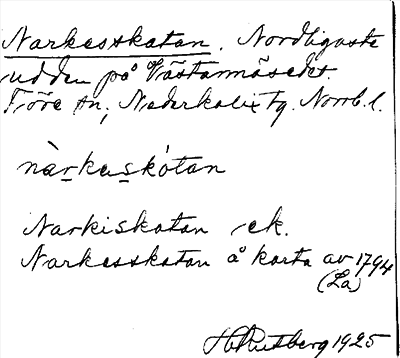 Narkesskatan. Nordligaste
udden på Västannäsedet.
Töre sn, Nederkalix tg. Norrb. l.
nàrkesskótan
Narkiskatan ek.
Narkesskatan å karta av 1794
(La)
H Rutberg 1925